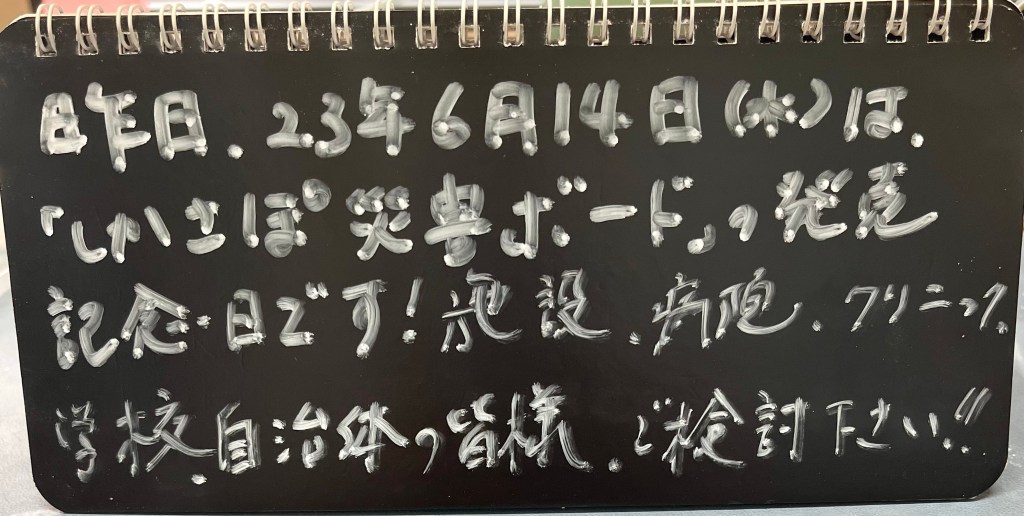 昨日、23年6月14日(水)は、
「しかさぽ災害ボード」の発売
記念日です！施設、病院、クリニック、
学校、自治体の皆様、ご検討下さい!!